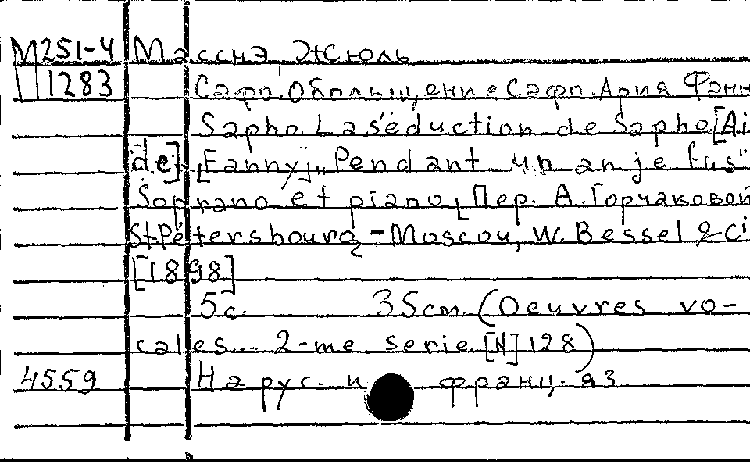 M251-4 Массне Жюль
1283 Сафо. Обольщение Сафо. Ария Фанн
Sapho. La séduction de Sapho [Ai
de] [Fanny] „Pendant un an je fus"
Soprano et piano [Пер. А. Горчаковой
St-Pétersbourg - Moscou, W. Bessel & Ci
[1898]
5с. 35см (Oeuvres vo-
cales. 2-me serie [N] 128)
4559 На рус. и франц. яз